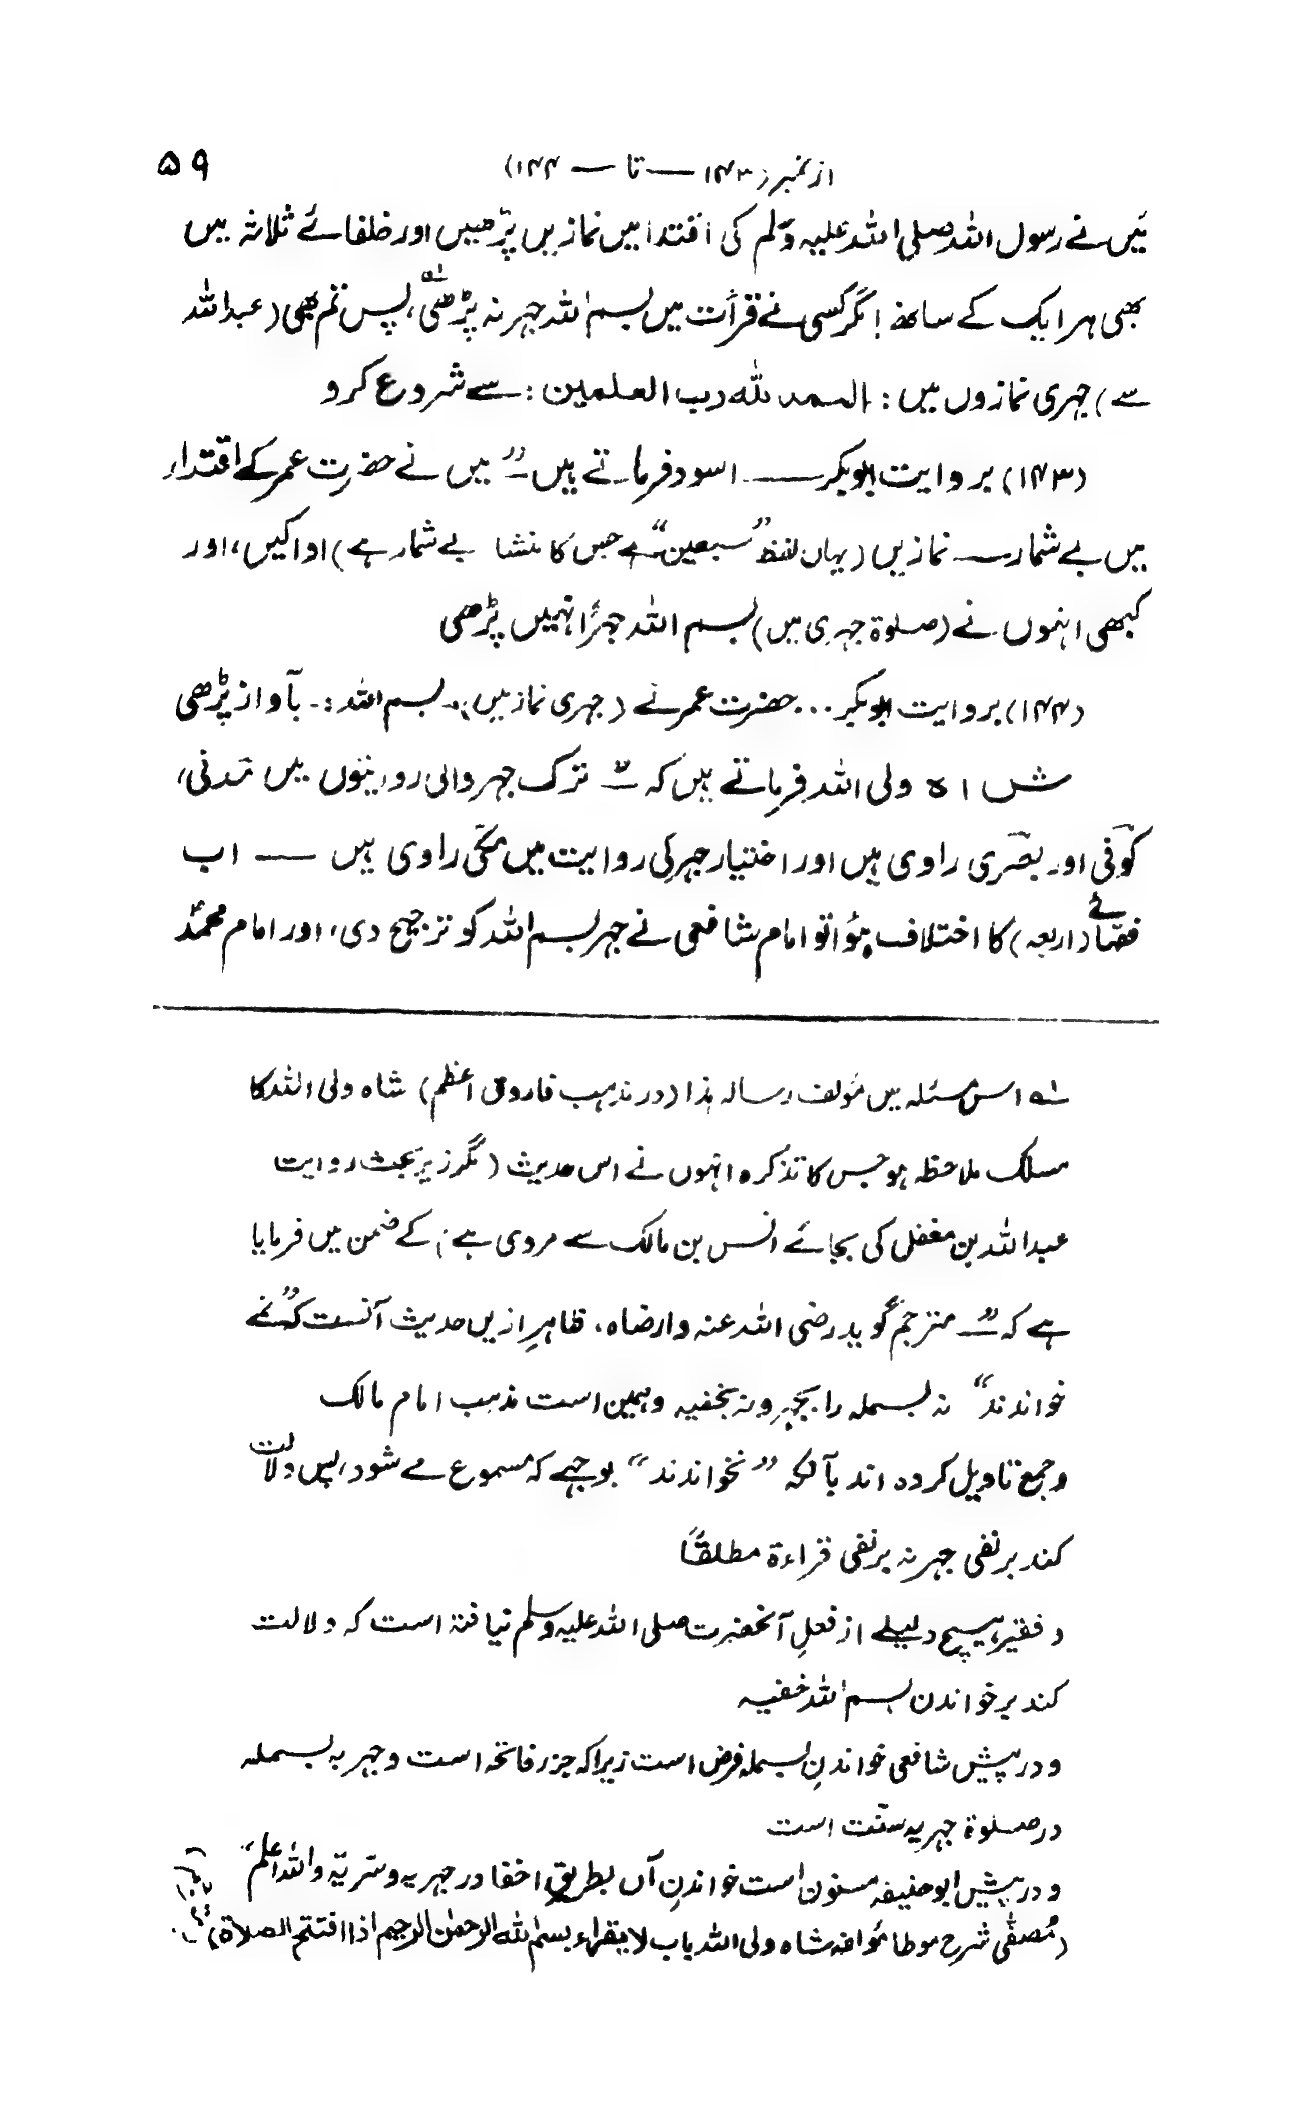 ۵۹
از نمبر (۱۴۳ — تا — ۱۴۴)
مَیں نے رسول اللہ صلی اللہ علیہ وسلم کی اقتدا میں نمازیں پڑھیں اور خلفائے ثلاثہ میں
بھی ہر ایک کے ساتھ! مگر کسی نے قرأت میں بسم اللہ جہر نہ پڑھی، پس تم بھی (عبداللہ
سے) جہری نمازوں میں: الحمد للہ رب العلمین: سے شروع کرو
(۱۴۳) بروایت ابوبکر — اسود فرماتے ہیں ـ" میں نے حضرت عمر کے اقتدار
میں بے شمار — نمازیں (یہاں لفظ "سبعین" ہے جس کا منشا بے شمار ہے) ادا کیں، اور
کبھی انہوں نے (صلوۃ جہری میں) بسم اللہ جہرًا نہیں پڑھی
(۱۴۴) بروایت ابوبکر ... حضرت عمر نے (جہری نماز میں) بسم اللہ :۔ بآواز پڑھی
شاہ ولی اللہ فرماتے ہیں کہ ـ" ترک جہر والی روایتوں میں مَدنی،
کوفی اور بصری راوی ہیں اور اختیار جہر کی روایت میں مکی راوی ہیں — اب
فقہائے (اربعہ) کا اختلاف ہؤا تو امام شافعی نے جہر بسم اللہ کو ترجیح دی، اور امام محمدؒ
لہ اس مسئلہ میں مؤلف رسالہ ہذا (در مذہب فاروق اعظم) شاہ ولی اللہ کا
مسلک ملاحظہ ہو جس کا تذکرہ انہوں نے اس حدیث (مگر زیر بحث روایت
عبداللہ بن مغفل کی بجائے انس بن مالک سے مروی ہے) کے ضمن میں فرمایا
ہے کہ ـ" مترجم گوید رضی اللہ عنہ وارضاہ، ظاہرِ ازیں حدیث آنست کہ "نمے
خواندند" نہ بسملہ را بجہر و نہ بخفیہ وہمین است مذہب امام مالک
وجمع تاویل کردہ اند بآنکہ "نخواندند" بوجہے کہ مسموع مے شود، پس دلالت
کند بر نفی جہر نہ بر نفی قراءۃ مطلقًا
و فقیر ہیچ دلیلے از فعلِ آنحضرت صلی اللہ علیہ وسلم نیافتہ است کہ دلالت
کند بر خواندن بسم اللہ خفیہ
و در پیش شافعی خواندنِ بسملہ فرض است زیرا کہ جزر فاتحہ است وجہر بہ بسملہ
در صلوۃ جہریہ سنّت است
و در پیش ابو حنیفہ مسنون است خواندنِ آں بطریق اخفا در جہریہ و سّریّہ واللہ اعلم"
(مُصفّٰی شرح موطا مؤلفہ شاہ ولی اللہ باب لا یقراء بسم اللہ الرحمٰن الرحیم اذا افتتح الصلاۃ)